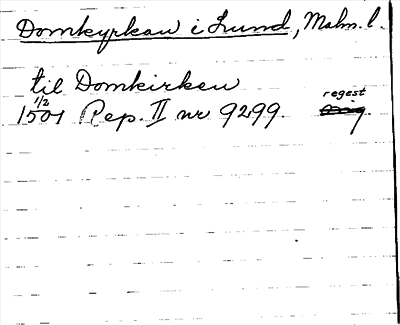 Domkyrkan i Lund, Malm. l.
til Domkirken
1/2
regest
1501 Rep. II nr 9299.